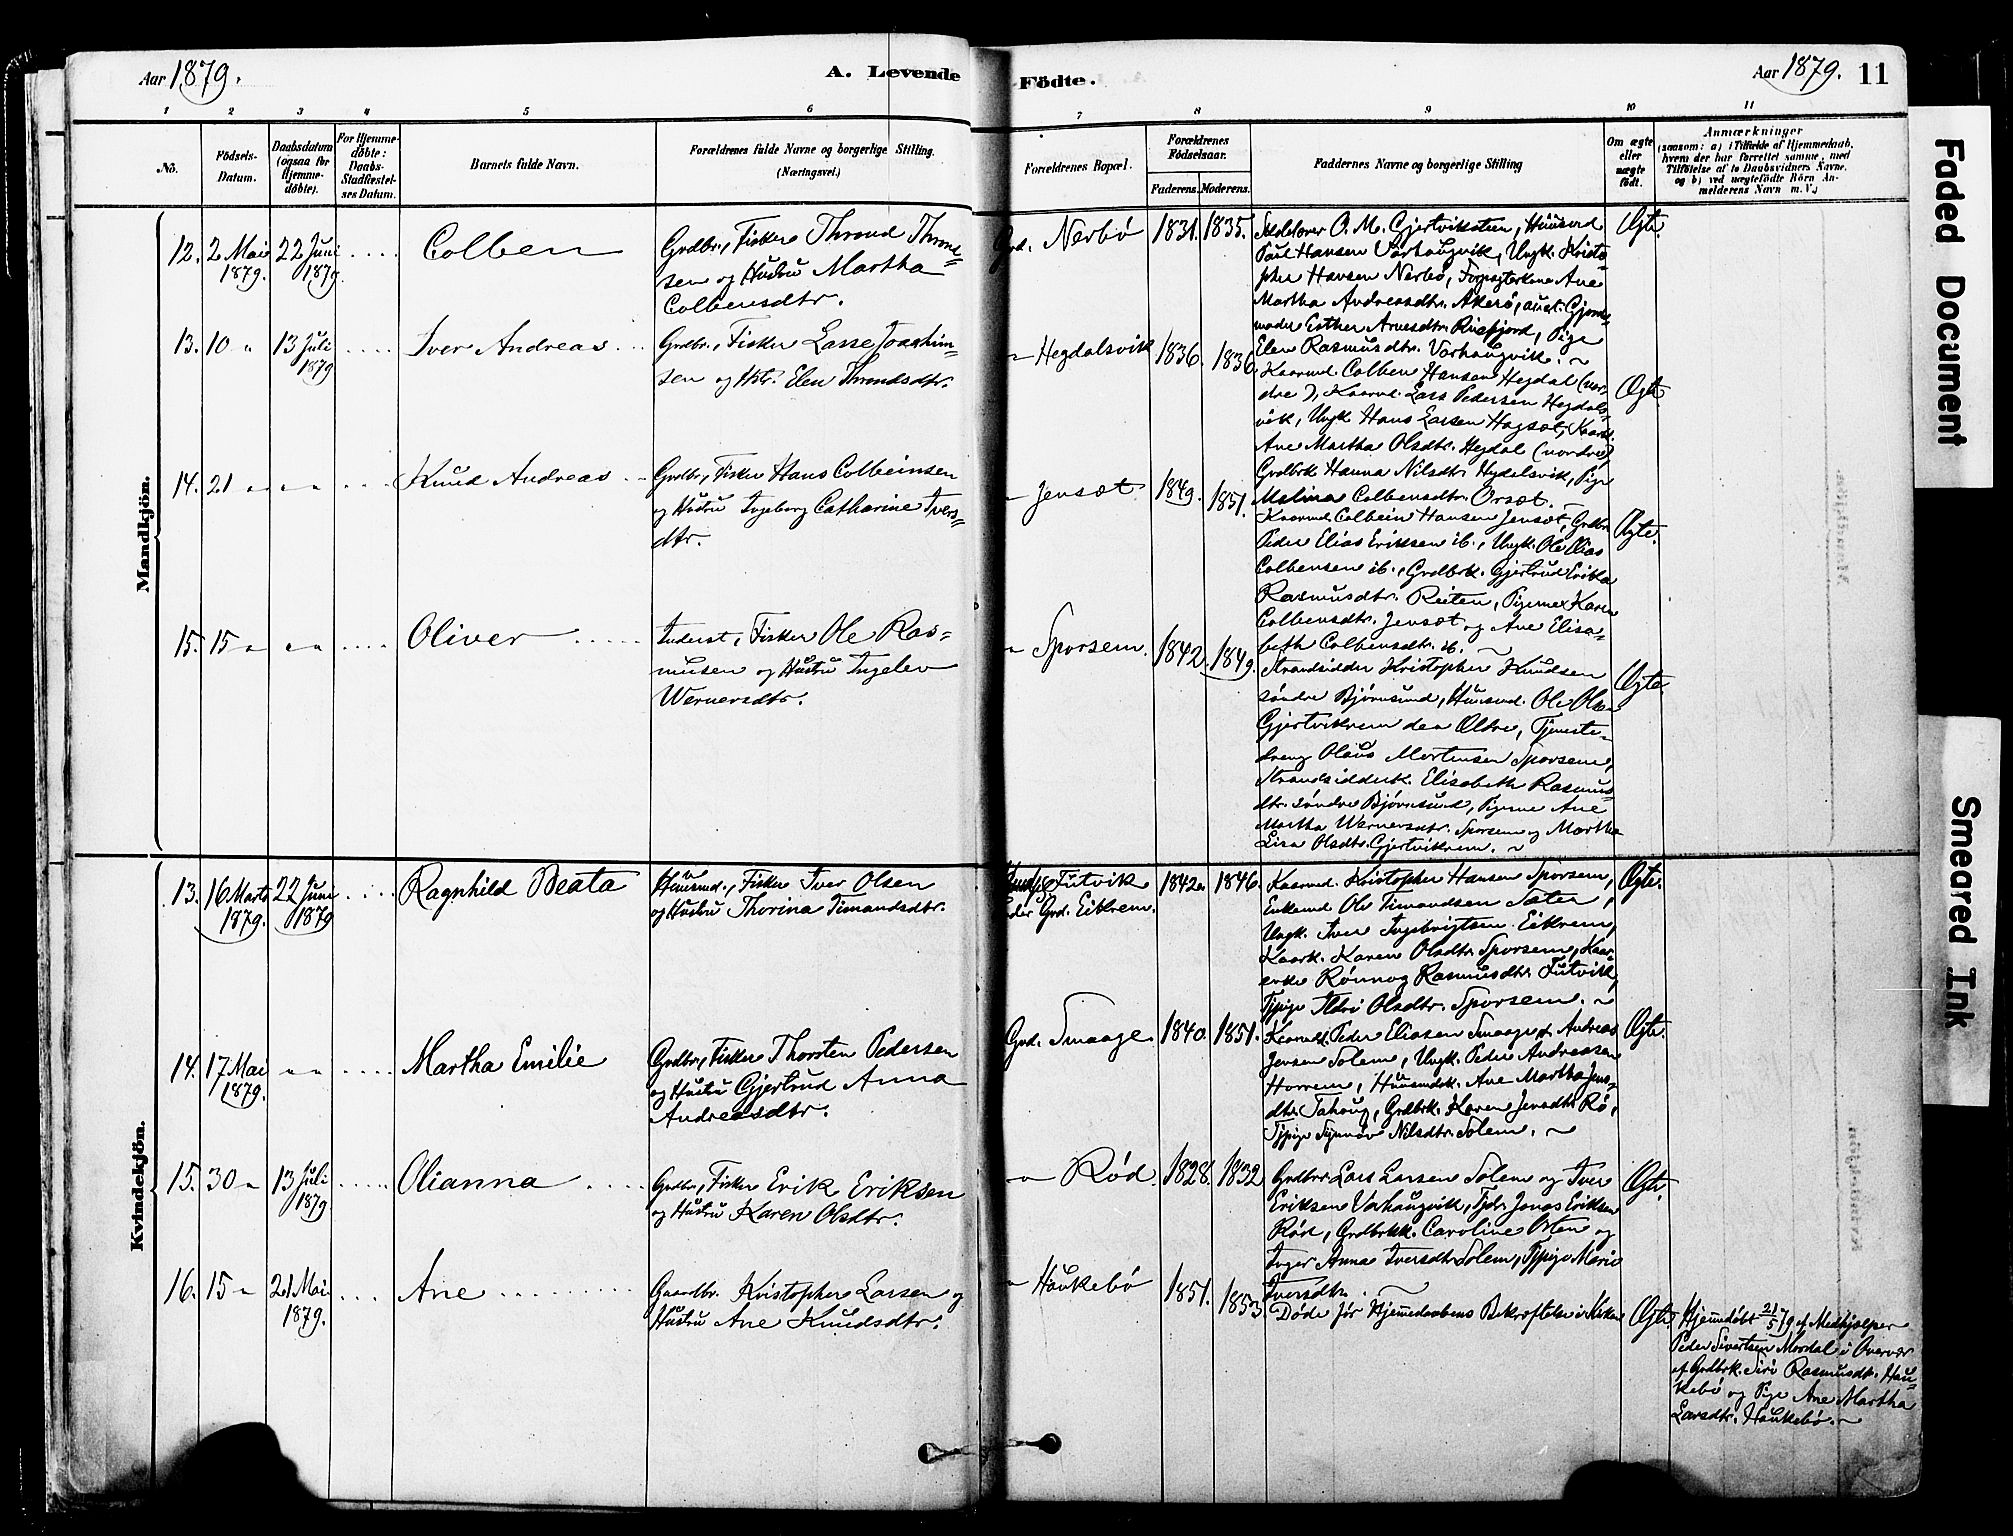 Aar 1879.
A. Levende
Födte.
Aar 1879. 11
1 2 3 4 5 6 7 8 9 10 11
No.
Födsels-Datum.
Daabsdatum (ogsaa for Hjemme-döbte).
For Hjemme-döbte: Daabs-Stadfæstel-ses Datum.
Barnets fulde Navn.
Forældrenes fulde Navne og borgerlige Stilling. (Næringsvei.)
Forældrenes Bopæl.
Forældrenes Födselsaar.
Faderens. Moderens.
Faddernes Navne og borgerlige Stilling
Om ægte eller uægte födt.
Anmærkninger
(saasom: a) i Tilfælde af Hjemmedaab,
hvem der har forrettet samme, med
Tilföielse af to Daabsvidners Navne.
og b) ved uægtefödte Börn An-
melderens Navn m. V.)
Mandkjön.
12. 2 Mai 1879. 22 Juni 1879. Colben
Grdbr., Fisker Thrond Thrond=
sen og Hustru Martha
Colbensdtr.
Grd. Nerbö 1831. 1835.
Sadelover O. M. Gjertvikstien, Huusmd
Paul Hansen Varhaugvik, Ungk. Kristo=
pher Hansen Nerbø, Ane
Martha Andreasdtr. Akerö, Gjorde=
moder Esther Arnesdtr. Riisfjord, Pige
Elen Rasmusdtr. Varhaugvik.
Ægte.
13. 10 " 13 Juli 1879 Iver Andreas
Grdbr., Fisker Lasse Joachim=
sen og Hstr. Elen Throndsdtr.
" Hegdalsvik 1836. 1836.
Kaarmd. Colben Hansen Hegdal (nor=
dre), Kaarmd. Lars Pedersen Hegdals=
vik, Ungk. Hans Larsen Hagset, Kaark.
Ane Martha Olsdtr. Hegdal (nordre),
Grdbrk. Hanna Nilsdtr. Hegdalsvik, Pige
Malina Colbensdtr. Orsæt.
Ægte.
14. 21 " " " Knud Andreas
Grdbr., Fisker Hans Colbeinsen
og Hustru Ingeborg Catharine Ivers=
dtr.
" Jensæt. 1849. 1851.
Kaarmd. Colbein Hansen Jensæt, Grdbr.
Peder Elias Eriksen ib., Ungk. Ole Elias
Colbensen ib., Grdbrk. Gjertrud Erika
Rasmusdtr. Reiten, Pigerne Karen
Colbensdtr. Jensæt og Ane Elisa=
beth Colbensdtr. ib.
Ægte.
15. 15 " " " Oliver
Inderst, Fisker Ole Ras=
musen og Hustru Ingelev
Wernersdtr.
" Sporsem. 1842. 1849.
Strandsidder Kristopher Knudsen
söndre Bjørnsund, Huusmd. Ole Olsen
Gjertvikrem den Ældre, Tjeneste=
dreng Olaus Mortensen Sporsem,
Strandsidderk. Elisabeth Rasmus=
dtr. söndre Bjørnsund, Pigerne Ane
Martha Wernersdtr. Sporsem og Martha
Lisa Olsdtr. Gjertvikrem.
Ægte
Kvindekjön.
13. 16 Marts 1879. 22 Juni 1879 Ragnhild Beata
Huusmd., Fisker Iver Olsen
og Hustru Thorina Timandsdtr.
Futvik
under Grd. Eikrem. 1842. 1846.
Kaarmd. Kristopher Hansen Sporsem,
Enkemd. Ole Timandsen Sæter,
Ungk. Iver Ingebrigtsen Eikrem,
Kaark. Karen Olsdtr. Sporsem, Kaar=
enke Rønnog Rasmusdtr. Futvik,
Tjpige Ildri Olsdtr. Sporsem.
Ægte.
14. 17 Mai 1879. " " Martha Emilie
Grdbr., Fisker Thorsten Pedersen
og Hustru Gjertrud Anna
Andreasdtr.
Grd. Smaage 1840. 1851.
Kaarmd. Peder Eliasen Smaage og Andreas
Jensen Solem, Ungk. Peder Andreasen
Horrem, Huusmdsk. Ane Martha Jens=
dtr. Tahaug, Grdbrk. Karen Jensdtr. Rö,
Tjpige Synnöv Nilsdtr. Solem.
Ægte.
15. 30 " 13 Juli 1879. Olianna
Grdbr., Fisker Erik Eriksen
og Hustru Karen Olsdtr.
" Rød 1828. 1832
Grdbrr. Lars Larsen Solem og Iver
Eriksen Varhaugvik, Tjdr. Jonas Eriksen
Rød, Grdbrkk. Caroline Osten og
Inger Anna Iversdtr. Solem, Tjpige Marie
Iversdtr.
Ægte.
16. 15 " 21 Mai 1879. Ane
Gaardbr. Kristopher Larsen og
Hustru Ane Knudsdtr.
" Haukebö 1851. 1853.
Døde før Hjemmedaabens Bekræftelse i Kirken
Ægte.
Hjemmedøbt 21/5 79 af Medhjælper
Peder Sivertsen Mordal i Overvær
af Grdbrk. Siri Rasmusdtr. Hau=
kebö og Pige Ane Martha
Larsdtr. Haukebö.
Faded Document
Smeared Ink